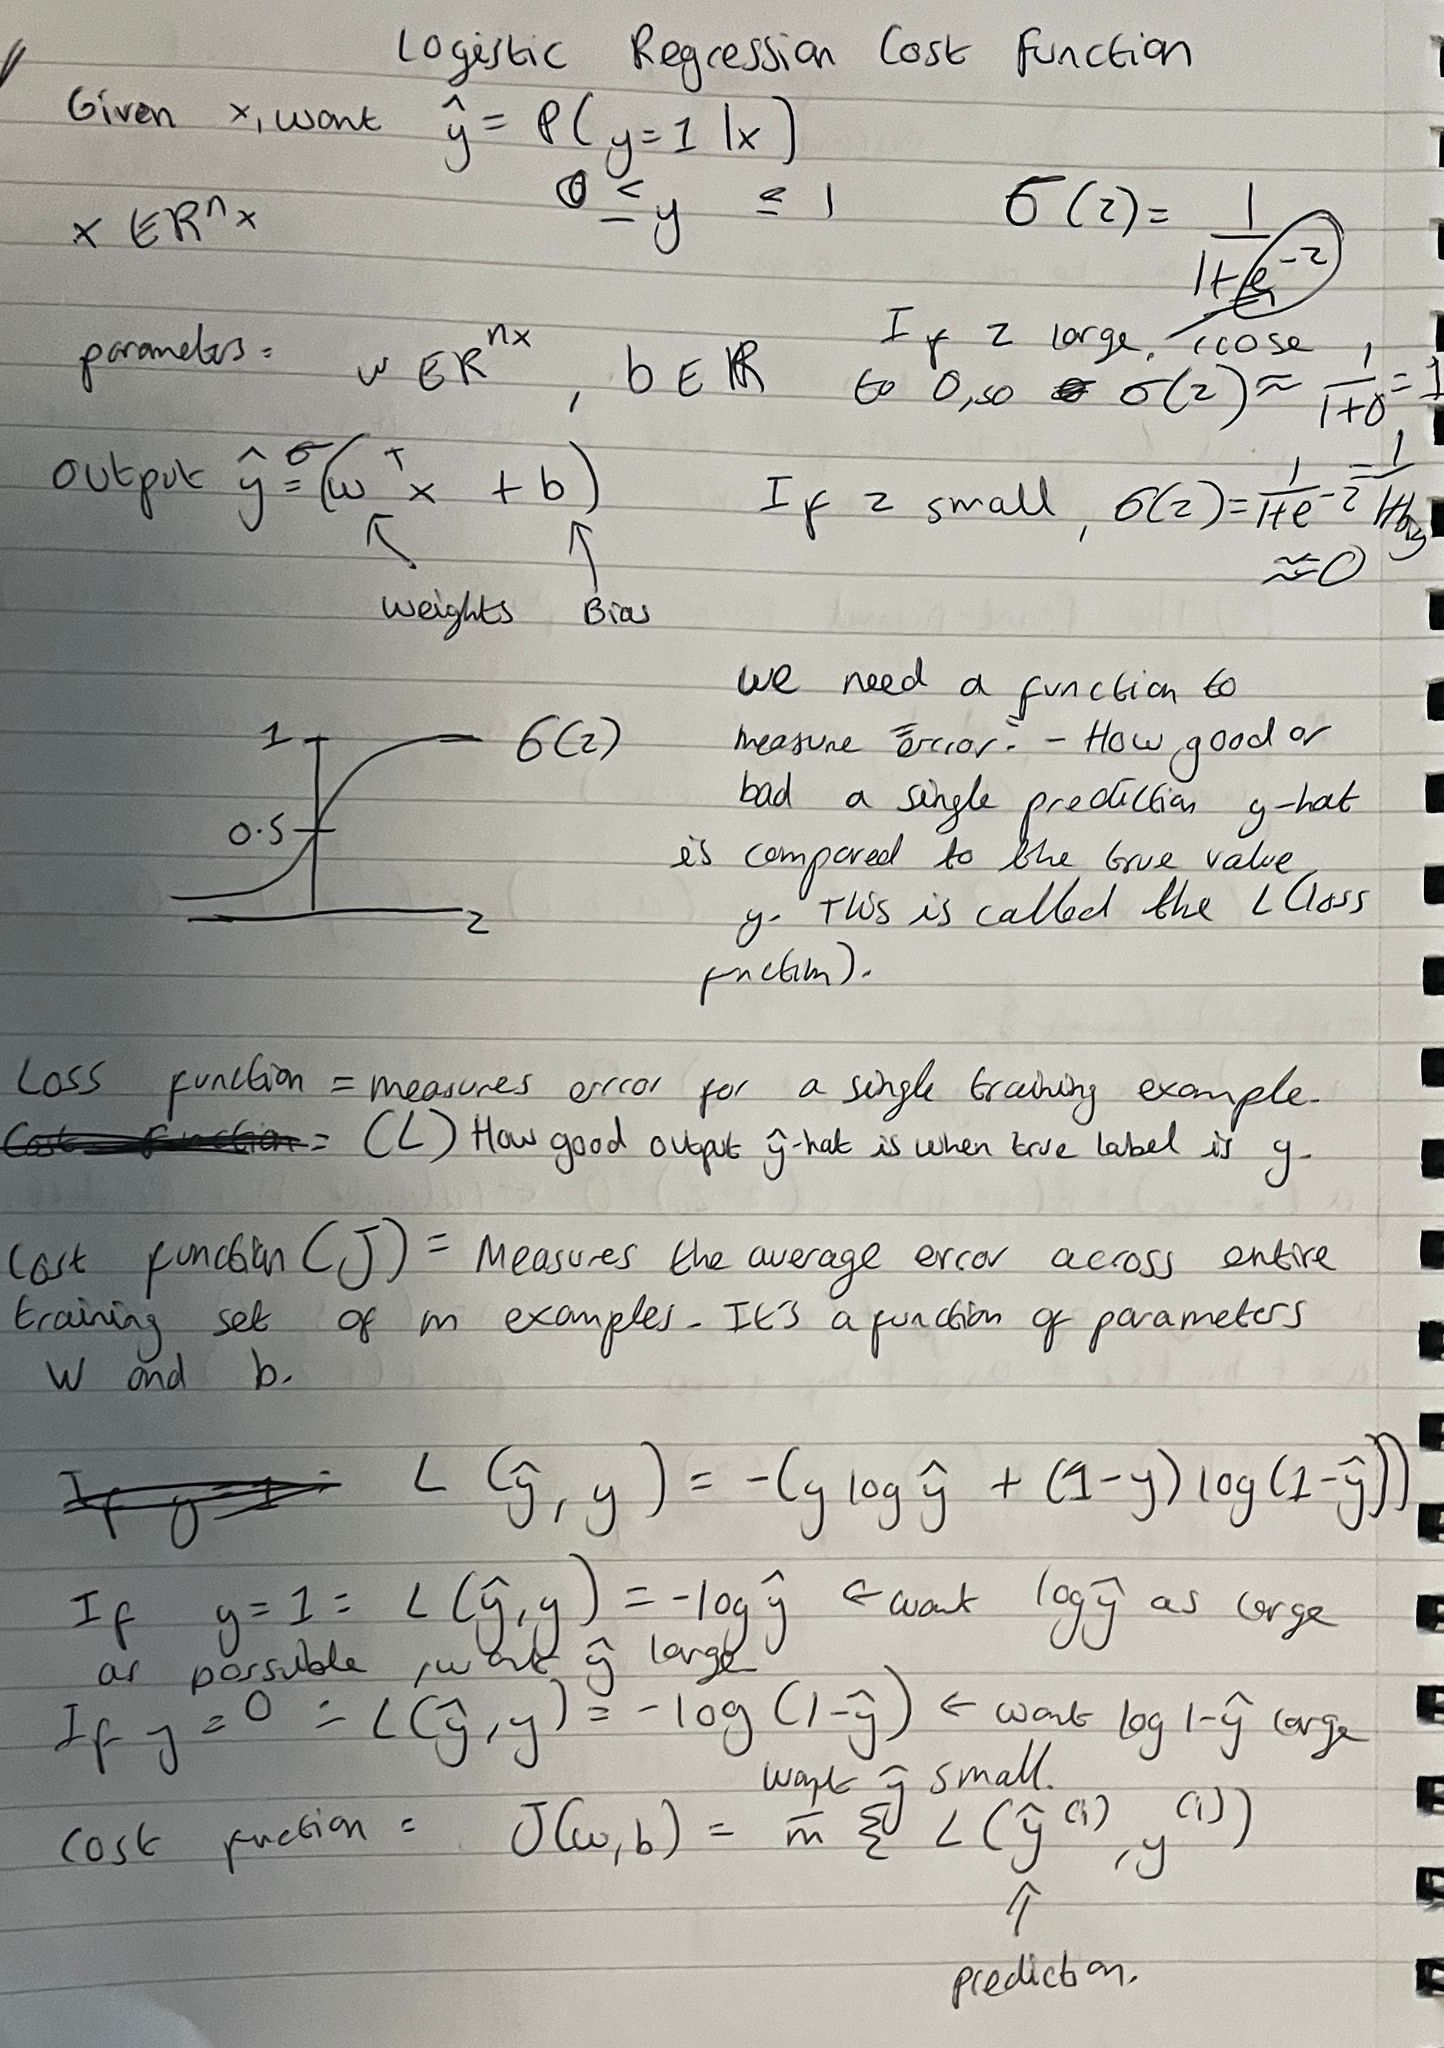 Logistic Regression Cost function
Given x, want ŷ = P(y=1|x)
0 ≤ y ≤ 1
x ∈ R^nx
σ(z) = 1/(1+e^-z)
parameters: w ∈ R^nx, b ∈ R
If z large, close
to 0, so σ(z) ≈ 1/(1+0) = 1
Output ŷ = σ(w^T x + b)
weights Bias
If z small, σ(z) = 1/(1+e^-z) = 1/(1+big)
≈ 0
1 σ(z)
0.5
z
We need a function to
measure "error": - How good or
bad a single prediction y-hat
is compared to the true value
y. This is called the L (loss
function).
Loss function = measures error for a single training example.
= (L) How good output ŷ-hat is when true label is y.
Cost function (J) = Measures the average error across entire
training set of m examples. It's a function of parameters
W and b.
L(ŷ, y) = -(y log ŷ + (1-y) log(1-ŷ))
If y=1: L(ŷ, y) = -log ŷ ← want log ŷ as large
as possible, want ŷ large
If y=0: L(ŷ, y) = -log(1-ŷ) ← want log 1-ŷ large
want ŷ small.
Cost function: J(w,b) = m Σ L(ŷ^(i), y^(i))
↑
prediction.